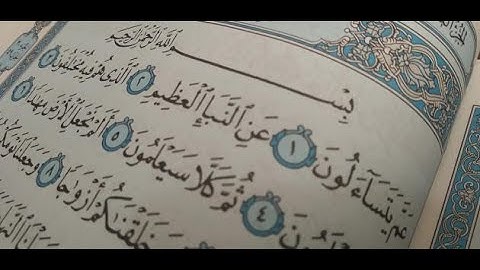 بِسْمِ ٱللَّهِ ٱلرَّحْمَٰنِ ٱلرَّحِيمِ
عَمَّ يَتَسَآءَلُونَ ١ عَنِ ٱلنَّبَإِ ٱلْعَظِيمِ ٢ ٱلَّذِى هُمْ فِيهِ مُخْتَلِفُونَ ٣
لَمُونَ ٤ ثُمَّ كَلَّا سَيَعْلَمُونَ ٥ أَلَمْ نَجْعَلِ ٱلْأَرْضَ مِهَٰدًا ٦
خَلَقْنَٰكُمْ أَزْوَٰجًا ٨ وَجَعَلْنَا نَوْمَكُ